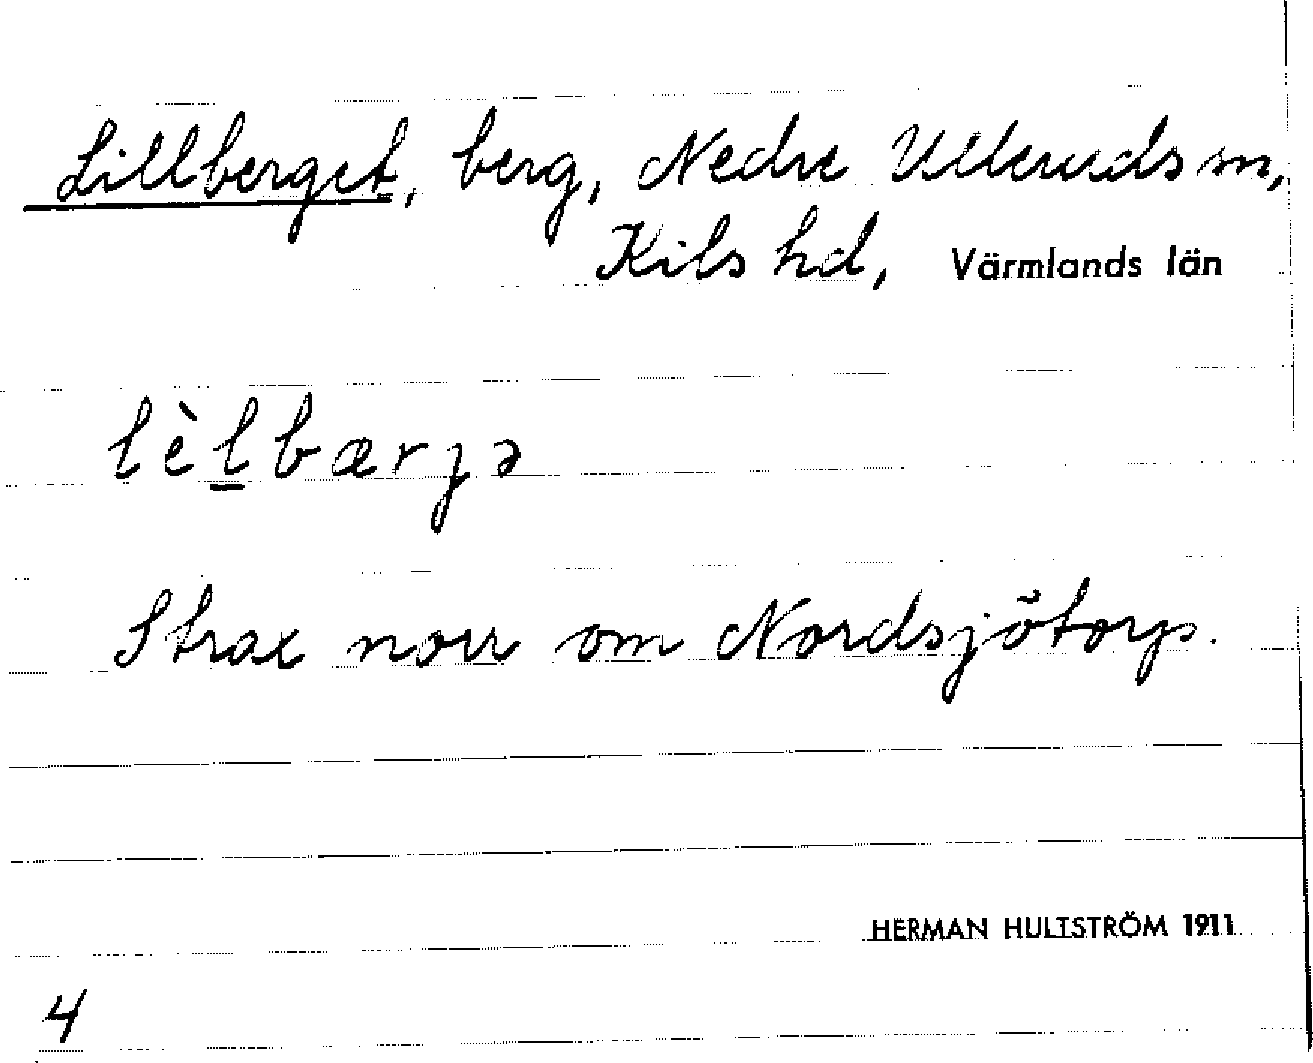 Lillberget, berg, Nedre Ulleruds sn,
Kils hd, Värmlands län
lèl̲bærjə
Strax norr om Nordsjötorp.
HERMAN HULTSTRÖM 1911
4